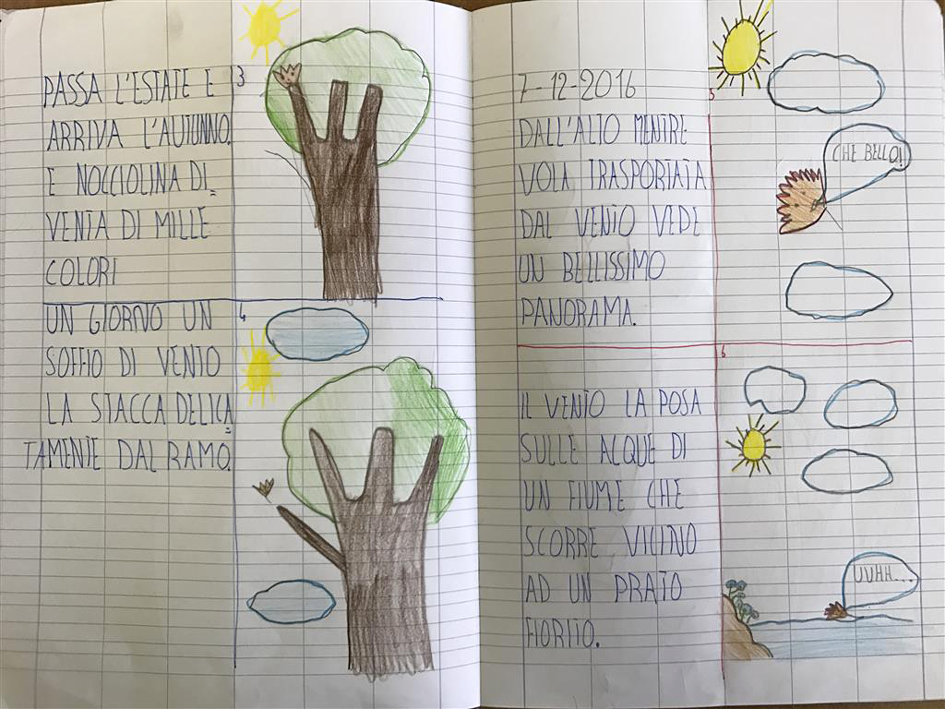 3
PASSA L'ESTATE E
ARRIVA L'AUTUNNO.
E NOCCIOLINA DI=
VENTA DI MILLE
COLORI
4
UN GIORNO UN
SOFFIO DI VENTO
LA STACCA DELICA=
TAMENTE DAL RAMO.
7-12-2016
5
DALL'ALTO MENTRE
VOLA TRASPORTATA
DAL VENTO VEDE
UN BELLISSIMO
PANORAMA.
CHE BELLO!
6
IL VENTO LA POSA
SULLE ALQUE DI
UN FIUME CHE
SCORRE VICINO
AD UN PRATO
FIORITO.
UUHH...